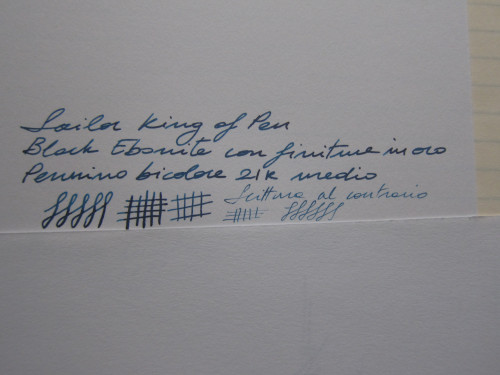 Sailor King of Pen
Black Ebonite con finiture in oro
Pennino bicolore 21K medio
Scrittura al contrario